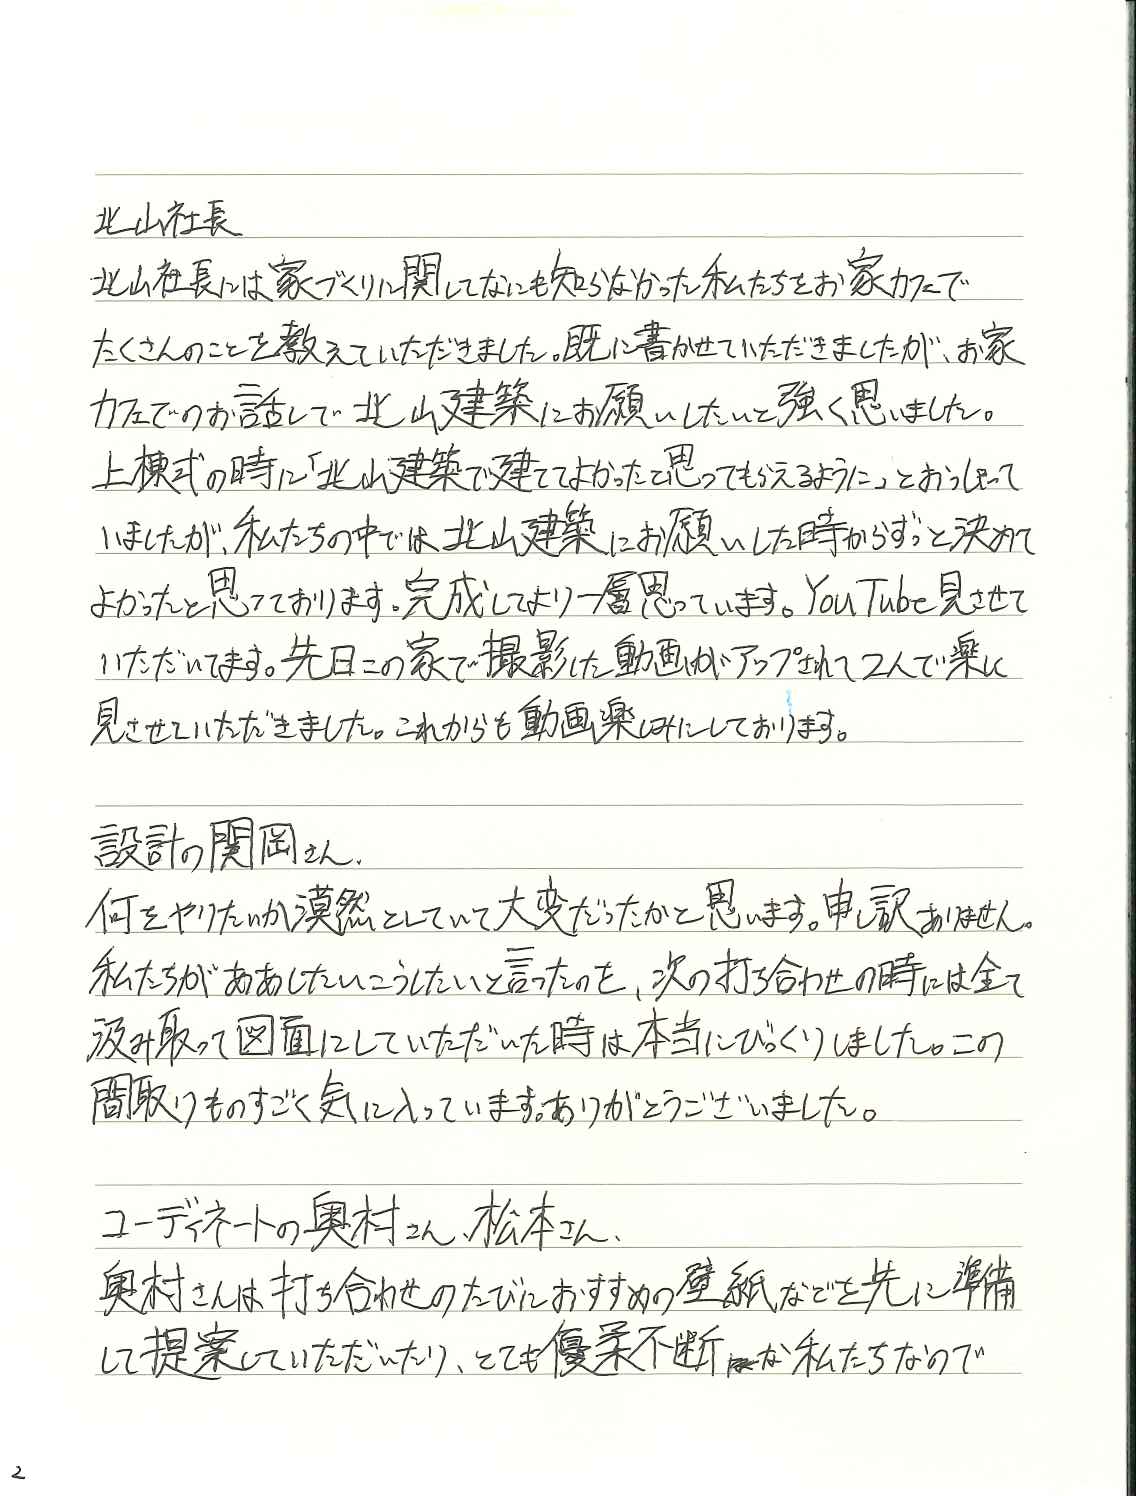 北山社長
北山社長には家づくりに関してなにも知らなかった私たちをお家カフェで
たくさんのことを教えていただきました。既に書かせていただきましたが、お家
カフェでのお話しで北山建築にお願いしたいと強く思いました。
上棟式の時に「北山建築で建ててよかったと思ってもらえるように」とおっしゃって
いましたが、私たちの中では北山建築にお願いした時からずっと決めて
よかったと思っております。完成してより一層思っています。YouTube見させて
いただいてます。先日この家で撮影した動画がアップされて2人で楽しく
見させていただきました。これからも動画楽しみにしております。
設計の関岡さん、
何をやりたいか漠然としていて大変だったかと思います。申し訳ありません。
私たちがああしたいこうしたいと言ったのを、次の打ち合わせの時には全て
汲み取って図面にしていただいた時は本当にびっくりしました。この
間取りものすごく気に入っています。ありがとうございました。
コーディネートの奥村さん、松本さん、
奥村さんは打ち合わせのたびにおすすめの壁紙などを先に準備
して提案していただいたり、とても優柔不断な私たちなので
2